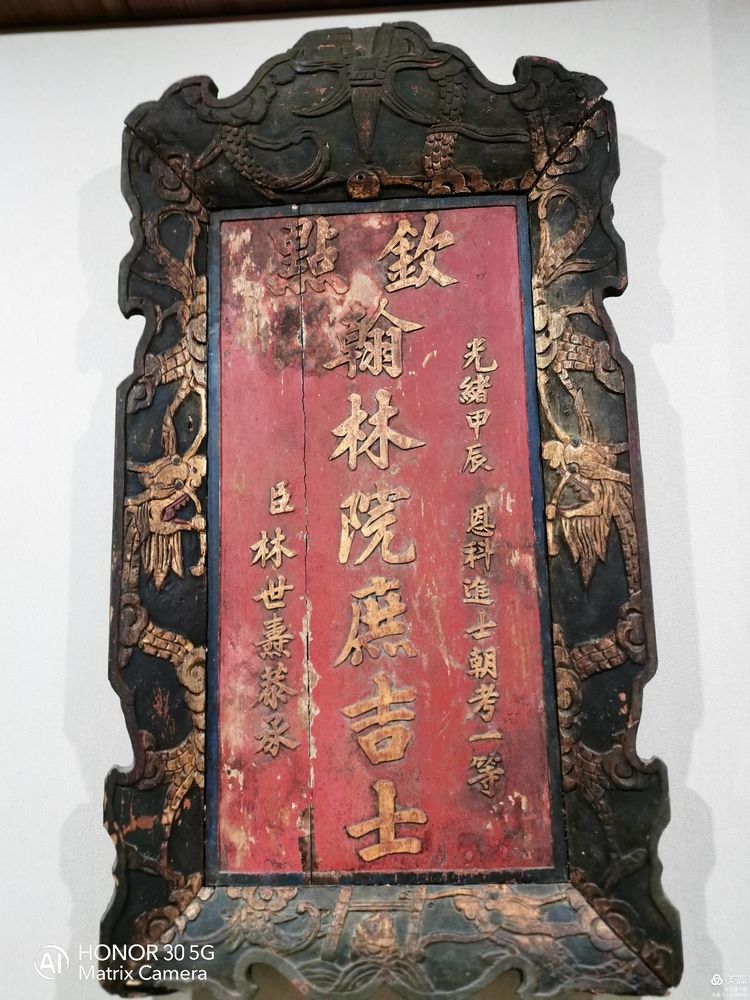 光緒甲辰 恩科進士朝考一等
欽點
翰林院庶吉士
臣林世燾恭承
AI HONOR 30 5G
Matrix Camera
美篇